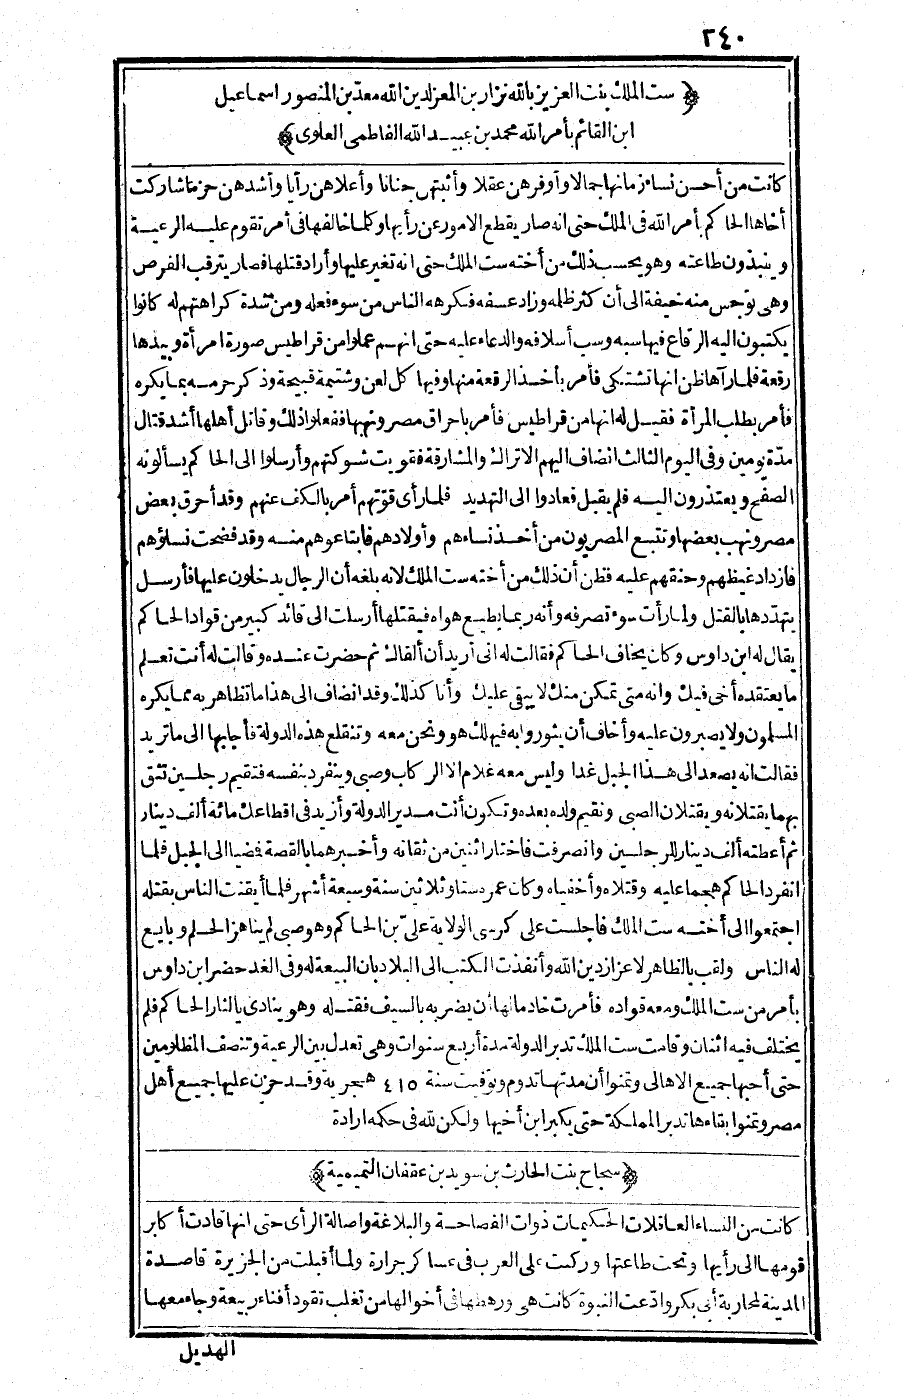 ٢٤٠
﴿ست الملك بنت العزيز بالله نزار بن المعز لدين الله معد بن المنصور اسماعيل
ابن القائم بأمر الله محمد بن عبيد الله الفاطمى العلوى﴾
كانت من أحسن نساء زمانها جمالا وأوفرهن عقلا وأثبتهن جنانا وأعلاهن رأيا وأشدهن حزما شاركت
أخاها الحاكم بأمر الله فى الملك حتى انه صار يقطع الامور عن رأيها وكلما خالفها فى أمر تقوم عليه الرعية
وينبذون طاعته وهو يحسب ذلك من أخته ست الملك حتى انه تغير عليها وأراد قتلها فصار يترقب الفرص
وهى توجس منه خيفة الى أن كثر ظلمه وزاد عسفه فكرهه الناس من سوء فعله ومن شدة كراهتهم له كانوا
يكتبون اليه الرقاع فيها سبه وسب أسلافه والدعاء عليه حتى انهم عملوا من قراطيس صورة امرأة وبيدها
رقعة فلما رآها ظن انها تشتكى فأمر بأخذ الرقعة منها وفيها كل لعن وشتيمة قبيحة وذكر حرمه بما يكره
فأمر بطلب المرأة فقيل له انها من قراطيس فأمر باحراق مصر ونهبها ففعلوا ذلك وقاتل أهلها أشد قتال
مدة يومين وفى اليوم الثالث انضاف اليهم الاتراك والمشارقة فقويت شوكتهم وأرسلوا الى الحاكم يسألونه
الصفح ويعتذرون اليه فلم يقبل فعادوا الى التهديد فلما رأى قوتهم أمر بالكف عنهم وقد أحرق بعض
مصر ونهب بعضها وتتبع المصريون من أخذ نساءهم وأولادهم فابتاعوهم منه وقد فضحت نساؤهم
فازداد غيظهم وحنقهم عليه فظن أن ذلك من أخته ست الملك لانه بلغه أن الرجال يدخلون عليها فأرسل
يتهددها بالقتل ولما رأت سوء تصرفه وأنه ربما يطيع هواه فيقتلها أرسلت الى قائد كبير من قواد الحاكم
يقال له ابن داوس وكان يخاف الحاكم فقالت له انى أريد أن ألقاك ثم حضرت عنده وقالت له أنت تعلم
ما يعتقده أخى فيك وانه متى تمكن منك لا يبقى عليك وأنا كذلك وقد انضاف الى هذا ما تظاهر به مما يكره
المسلمون ولا يصبرون عليه وأخاف أن يثوروا به فيهلك هو ونحن معه وتنقلع هذه الدولة فأجابها الى ما تريد
فقالت انه يصعد الى هذا الجبل غدا وليس معه غلام الا الركاب وصبى وينفرد بنفسه فتقيم رجلين تثق
بهما يقتلانه ويقتلان الصبى ونقيم ولده بعده وتكون أنت مدير الدولة وأزيد فى اقطاعك مائة ألف دينار
ثم أعطته ألف دينار للرجلين وانصرفت فاختار اثنين من ثقاته وأخبرهما بالقصة فمضيا الى الجبل فلما
انفرد الحاكم هجما عليه وقتلاه وأخفياه وكان عمره ستا وثلاثين سنة وسبعة أشهر فلما أيقنت الناس بقتله
اجتمعوا الى أخته ست الملك فاجلست على كرسى الولاية على بن الحاكم وهو صبى لم يناهز الحلم وبايع
له الناس ولقب بالظاهر لاعزاز دين الله وأنفذت الكتب الى البلاد بان البيعة له وفى الغد حضر ابن داوس
بأمر من ست الملك ومعه قواده فأمرت خادما لها أن يضربه بالسيف فقتله وهو ينادى يالثار الحاكم فلم
يختلف فيه اثنان وقامت ست الملك تدبر الدولة مدة أربع سنوات وهى تعدل بين الرعية وتنصف المظلومين
حتى أحبها جميع الاهالى وتمنوا أن مدتها تدوم وتوفيت سنة ٤١٥ هجرية وقد حزن عليها جميع أهل
مصر وتمنوا بقاءها تدبر المملكة حتى يكبر ابن أخيها ولكن لله فى حكمه ارادة
﴿سجاح بنت الحارث بن سويد بن عقفان التميمية﴾
كانت من النساء العاقلات الحكيمات ذوات الفصاحة والبلاغة واصالة الرأى حتى انها قادت أكابر
قومها الى رأيها وتحت طاعتها وركبت على العرب فى عساكر جرارة ولما أقبلت من الجزيرة قاصدة
المدينة لمحاربة أبى بكر وادعت النبوة كانت هى ورهطها فى أخوالها من تغلب تقود أفناء ربيعة وجاء معها
الهذيل